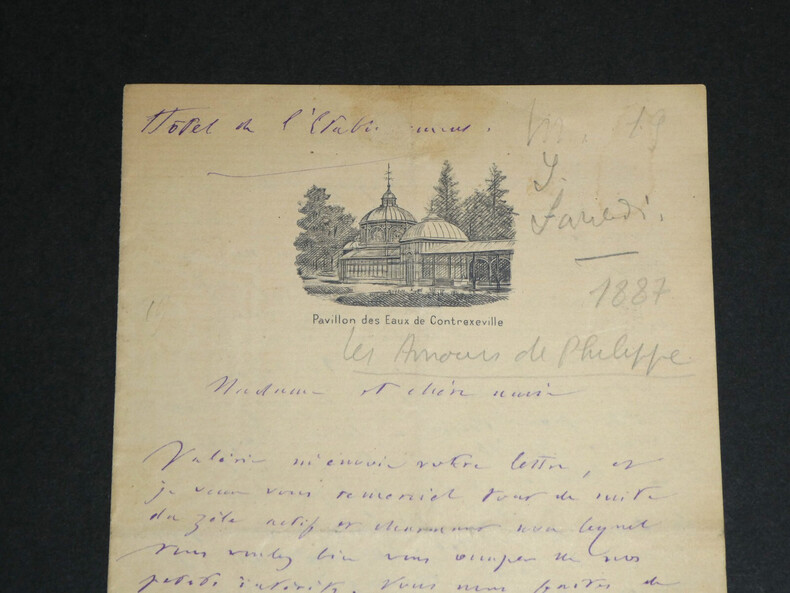 Hôtel de l'Etablissmens.
S.
Samedi.
1887
Pavillon des Eaux de Contrexeville
Les Amours de Philippe
Madame et chère amie
Valérie m'envoie votre lettre, et
je veux vous remercier tout de suite
du zèle actif et charmant avec lequel
vous voulez bien vous occuper de nos
petits intérêts. Vous nous parlez de